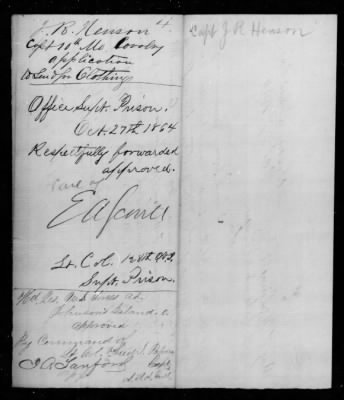 J. R. Henson 4
Capt 10th Mo. Cavalry
application
to Send for Clothing
Office Supt. Prison.
Oct. 27th 1864
Respectfully forwarded
approved.
E A Scovill
Lt. Col. 128th
Supt. Prison.
Hd. Qrs. U. S. forces at
Johnson's Island. O.
Approved
By Command of
Lt. Col.
Capt J R Henson